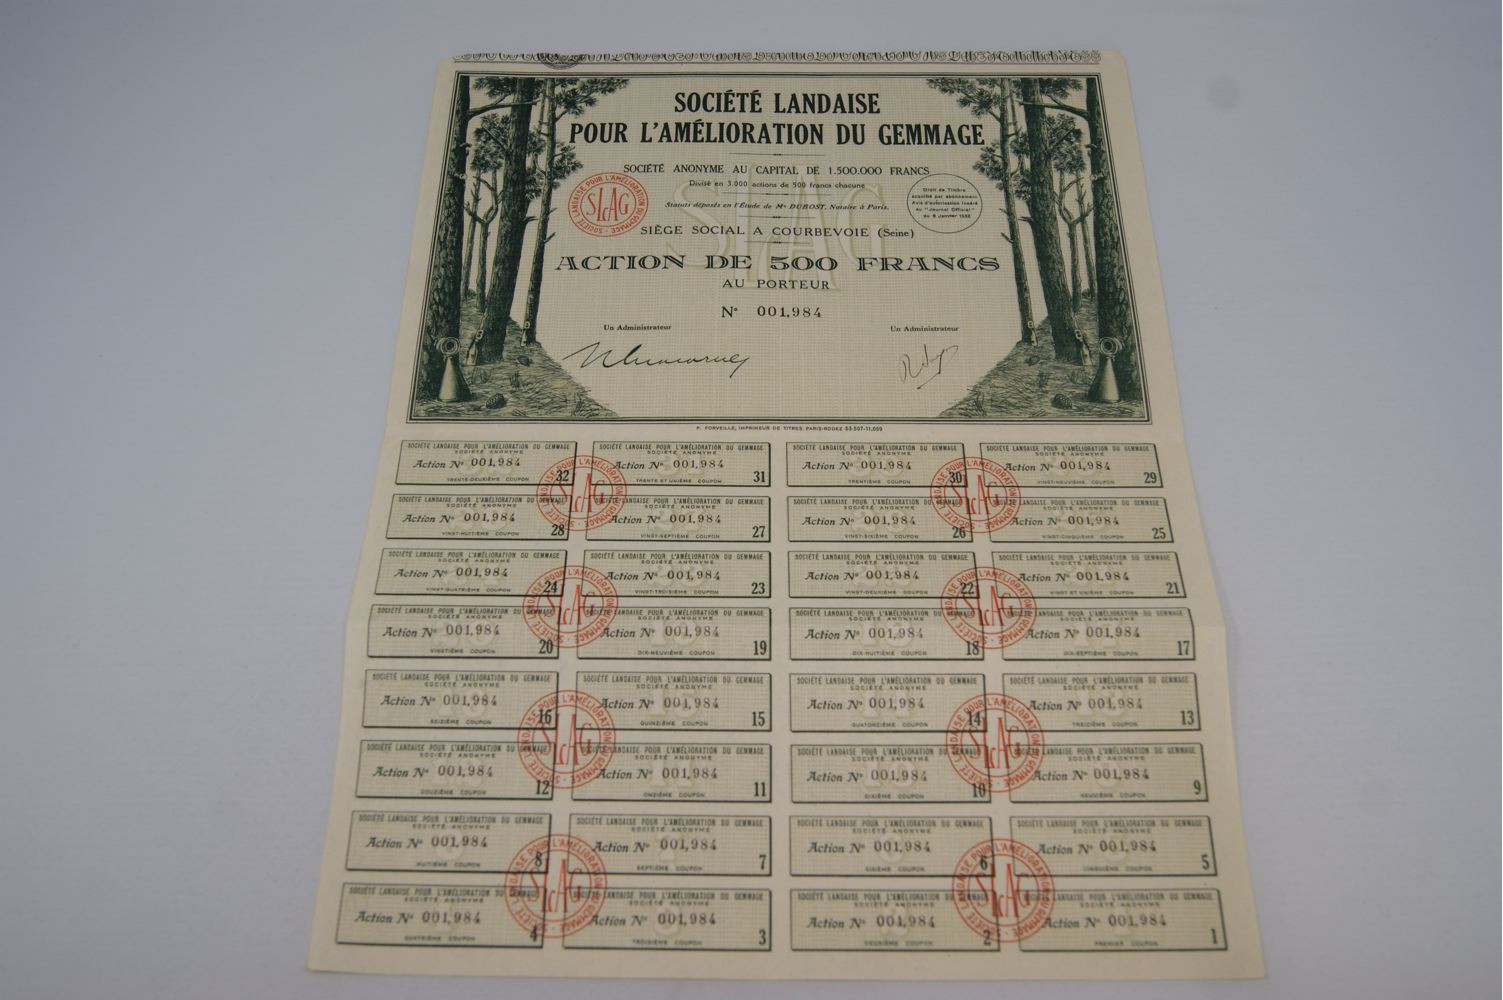 SOCIÉTÉ LANDAISE
POUR L'AMÉLIORATION DU GEMMAGE
SOCIÉTÉ ANONYME AU CAPITAL DE 1.500.000 FRANCS
Divisé en 3.000 actions de 500 francs chacune
Statuts déposés en l'Étude de Me DUBOST, Notaire à Paris.
SIÈGE SOCIAL A COURBEVOIE (Seine)
SOCIÉTÉ LANDAISE POUR L'AMÉLIORATION DU GEMMAGE
SLAG
Droit de Timbre
acquitté par abonnement
Avis d'autorisation inséré
au "Journal Officiel"
du 8 Janvier 1932
ACTION DE 500 FRANCS
AU PORTEUR
N° 001,984
Un Administrateur
Un Administrateur
P. FORVEILLE, IMPRIMEUR DE TITRES. PARIS-RODEZ 53.507-11.059
SOCIÉTÉ LANDAISE POUR L'AMÉLIORATION DU GEMMAGE
SOCIÉTÉ ANONYME
Action N° 001,984
TRENTE-DEUXIÈME COUPON 32
SOCIÉTÉ LANDAISE POUR L'AMÉLIORATION DU GEMMAGE
SOCIÉTÉ ANONYME
Action N° 001,984
TRENTE ET UNIÈME COUPON 31
SOCIÉTÉ LANDAISE POUR L'AMÉLIORATION DU GEMMAGE
SOCIÉTÉ ANONYME
Action N° 001,984
TRENTIÈME COUPON 30
SOCIÉTÉ LANDAISE POUR L'AMÉLIORATION DU GEMMAGE
SOCIÉTÉ ANONYME
Action N° 001,984
VINGT-NEUVIÈME COUPON 29
SOCIÉTÉ LANDAISE POUR L'AMÉLIORATION DU GEMMAGE
SOCIÉTÉ ANONYME
Action N° 001,984
VINGT-HUITIÈME COUPON 28
SOCIÉTÉ LANDAISE POUR L'AMÉLIORATION DU GEMMAGE
SOCIÉTÉ ANONYME
Action N° 001,984
VINGT-SEPTIÈME COUPON 27
SOCIÉTÉ LANDAISE POUR L'AMÉLIORATION DU GEMMAGE
SOCIÉTÉ ANONYME
Action N° 001,984
VINGT-SIXIÈME COUPON 26
SOCIÉTÉ LANDAISE POUR L'AMÉLIORATION DU GEMMAGE
SOCIÉTÉ ANONYME
Action N° 001,984
VINGT-CINQUIÈME COUPON 25
SOCIÉTÉ LANDAISE POUR L'AMÉLIORATION DU GEMMAGE
SOCIÉTÉ ANONYME
Action N° 001,984
VINGT-QUATRIÈME COUPON 24
SOCIÉTÉ LANDAISE POUR L'AMÉLIORATION DU GEMMAGE
SOCIÉTÉ ANONYME
Action N° 001,984
VINGT-TROISIÈME COUPON 23
SOCIÉTÉ LANDAISE POUR L'AMÉLIORATION DU GEMMAGE
SOCIÉTÉ ANONYME
Action N° 001,984
VINGT-DEUXIÈME COUPON 22
SOCIÉTÉ LANDAISE POUR L'AMÉLIORATION DU GEMMAGE
SOCIÉTÉ ANONYME
Action N° 001,984
VINGT ET UNIÈME COUPON 21
SOCIÉTÉ LANDAISE POUR L'AMÉLIORATION DU GEMMAGE
SOCIÉTÉ ANONYME
Action N° 001,984
VINGTIÈME COUPON 20
SOCIÉTÉ LANDAISE POUR L'AMÉLIORATION DU GEMMAGE
SOCIÉTÉ ANONYME
Action N° 001,984
DIX-NEUVIÈME COUPON 19
SOCIÉTÉ LANDAISE POUR L'AMÉLIORATION DU GEMMAGE
SOCIÉTÉ ANONYME
Action N° 001,984
DIX-HUITIÈME COUPON 18
SOCIÉTÉ LANDAISE POUR L'AMÉLIORATION DU GEMMAGE
SOCIÉTÉ ANONYME
Action N° 001,984
DIX-SEPTIÈME COUPON 17
SOCIÉTÉ LANDAISE POUR L'AMÉLIORATION DU GEMMAGE
SOCIÉTÉ ANONYME
Action N° 001,984
SEIZIÈME COUPON 16
SOCIÉTÉ LANDAISE POUR L'AMÉLIORATION DU GEMMAGE
SOCIÉTÉ ANONYME
Action N° 001,984
QUINZIÈME COUPON 15
SOCIÉTÉ LANDAISE POUR L'AMÉLIORATION DU GEMMAGE
SOCIÉTÉ ANONYME
Action N° 001,984
QUATORZIÈME COUPON 14
SOCIÉTÉ LANDAISE POUR L'AMÉLIORATION DU GEMMAGE
SOCIÉTÉ ANONYME
Action N° 001,984
TREIZIÈME COUPON 13
SOCIÉTÉ LANDAISE POUR L'AMÉLIORATION DU GEMMAGE
SOCIÉTÉ ANONYME
Action N° 001,984
DOUZIÈME COUPON 12
SOCIÉTÉ LANDAISE POUR L'AMÉLIORATION DU GEMMAGE
SOCIÉTÉ ANONYME
Action N° 001,984
ONZIÈME COUPON 11
SOCIÉTÉ LANDAISE POUR L'AMÉLIORATION DU GEMMAGE
SOCIÉTÉ ANONYME
Action N° 001,984
DIXIÈME COUPON 10
SOCIÉTÉ LANDAISE POUR L'AMÉLIORATION DU GEMMAGE
SOCIÉTÉ ANONYME
Action N° 001,984
NEUVIÈME COUPON 9
SOCIÉTÉ LANDAISE POUR L'AMÉLIORATION DU GEMMAGE
SOCIÉTÉ ANONYME
Action N° 001,984
HUITIÈME COUPON 8
SOCIÉTÉ LANDAISE POUR L'AMÉLIORATION DU GEMMAGE
SOCIÉTÉ ANONYME
Action N° 001,984
SEPTIÈME COUPON 7
SOCIÉTÉ LANDAISE POUR L'AMÉLIORATION DU GEMMAGE
SOCIÉTÉ ANONYME
Action N° 001,984
SIXIÈME COUPON 6
SOCIÉTÉ LANDAISE POUR L'AMÉLIORATION DU GEMMAGE
SOCIÉTÉ ANONYME
Action N° 001,984
CINQUIÈME COUPON 5
SOCIÉTÉ LANDAISE POUR L'AMÉLIORATION DU GEMMAGE
SOCIÉTÉ ANONYME
Action N° 001,984
QUATRIÈME COUPON 4
SOCIÉTÉ LANDAISE POUR L'AMÉLIORATION DU GEMMAGE
SOCIÉTÉ ANONYME
Action N° 001,984
TROISIÈME COUPON 3
SOCIÉTÉ LANDAISE POUR L'AMÉLIORATION DU GEMMAGE
SOCIÉTÉ ANONYME
Action N° 001,984
DEUXIÈME COUPON 2
SOCIÉTÉ LANDAISE POUR L'AMÉLIORATION DU GEMMAGE
SOCIÉTÉ ANONYME
Action N° 001,984
PREMIER COUPON 1